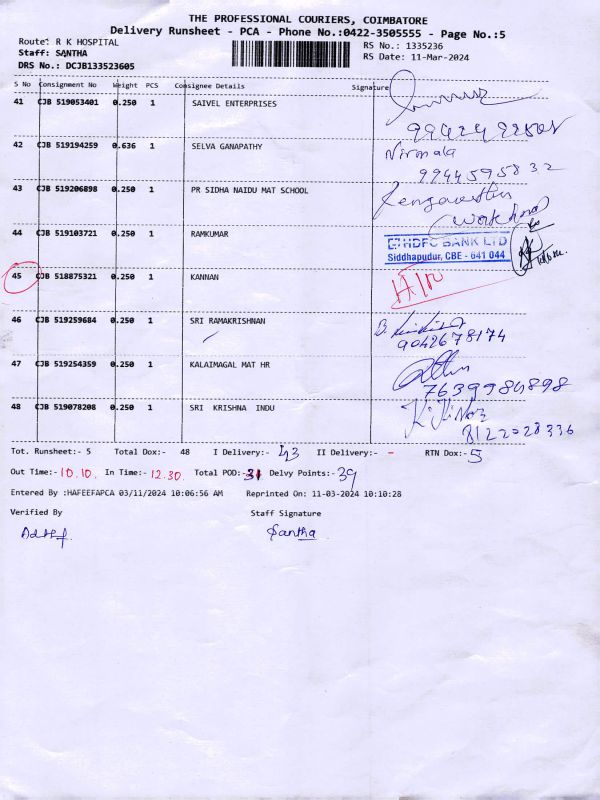 THE PROFESSIONAL COURIERS, COIMBATORE
Delivery Runsheet - PCA - Phone No.:0422-3505555 - Page No.:5
Route: R K HOSPITAL RS No.: 1335236
Staff: SANTHA RS Date: 11-Mar-2024
DRS No.: DCJB133523605
S No Consignment No Weight PCS Consignee Details Signature
41 CJB 519053401 0.250 1 SAIVEL ENTERPRISES
42 CJB 519194259 0.636 1 SELVA GANAPATHY Nirmala
9944595832
43 CJB 519206898 0.250 1 PR SIDHA NAIDU MAT SCHOOL
44 CJB 519103721 0.250 1 RAMKUMAR
HDFC BANK LTD
Siddhapudur, CBE - 641 044
45 CJB 518875321 0.250 1 KANNAN
46 CJB 519259684 0.250 1 SRI RAMAKRISHNAN
9042678174
47 CJB 519254359 0.250 1 KALAIMAGAL MAT HR
7639984898
48 CJB 519078208 0.250 1 SRI KRISHNA INDU
8122028336
Tot. Runsheet:- 5 Total Dox:- 48 I Delivery:- 43 II Delivery:- - RTN Dox:- 5
Out Time:- 10.10. In Time:- 12.30. Total POD:- Delvy Points:- 39
Entered By :HAFEEFAPCA 03/11/2024 10:06:56 AM Reprinted On: 11-03-2024 10:10:28
Verified By Staff Signature
Santha